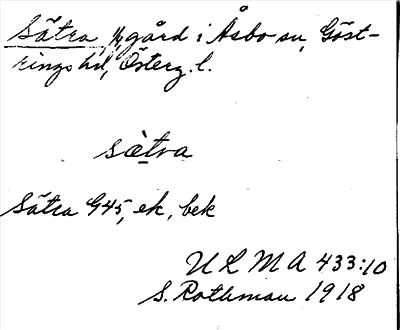 Sätra, by, gård i Åsbo sn, Göst-
rings hd, Österg. l.
sæ̀tra
Sätra G45, ek, bek
ULMA 433:10
S. Rothman 1918